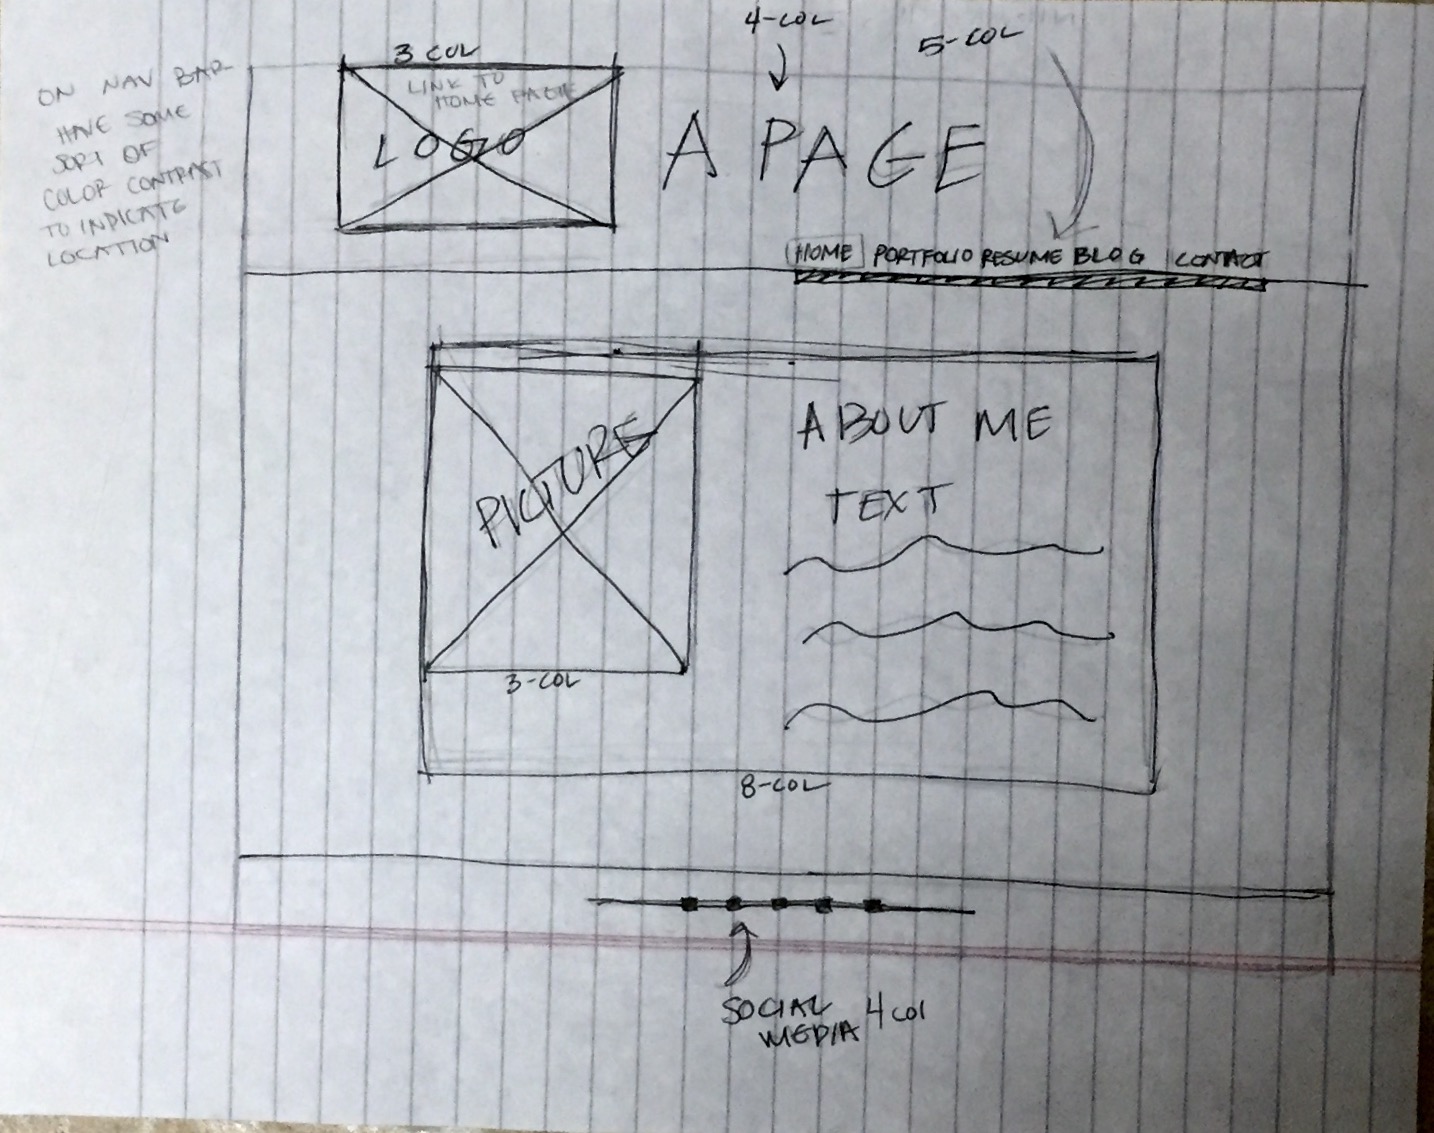 4-COL
5-COL
3 COL
ON NAV BAR
HAVE SOME
SORT OF
COLOR CONTRAST
TO INDICATE
LOCATION
LINK TO
HOME PAGE
LOGO
A PAGE
HOME PORTFOLIO RESUME BLOG CONTACT
PICTURE
3-COL
ABOUT ME
TEXT
8-COL
SOCIAL
MEDIA 4 COL